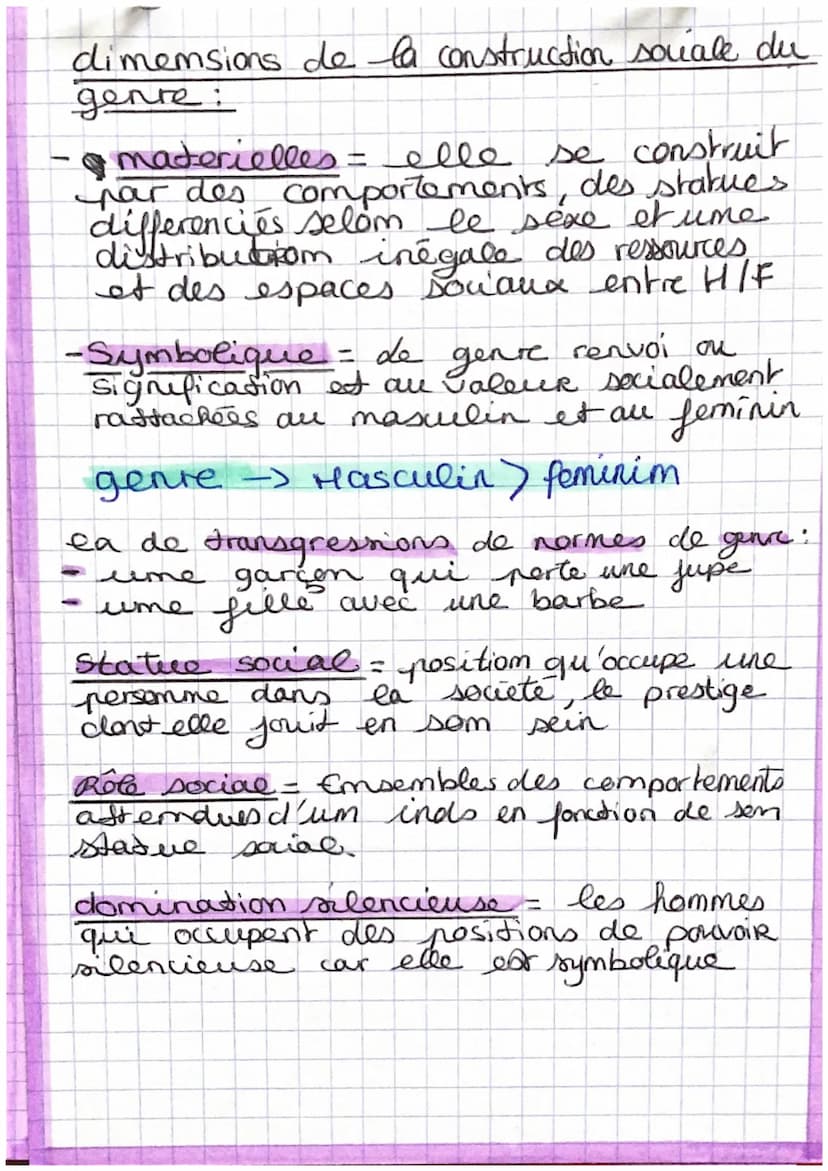 dimensions de la construction sociale du
genre :
- materielles = elle se construit
par des comportements, des statues
differenciés selom le séxe et une
distribution inégale des ressources
et des espaces sociaux entre H/F
- Symbolique = de genre renvoi au
signification et au valeur socialement
rattachées au masculin et au feminin
genre -> Masculin > feminim
ea de transgressions de normes de genre :
- ume garçon qui porte une jupe
- ume fille avec une barbe
Statue social = position qu'occupe une
personne dans la société, le prestige
dont elle jouit en som sein
Rôle social = Emsembles des comportements
attendues d'um inds en fonction de son
statue social.
domination silencieuse = les hommes
qui occupent des positions de pouvoir
silencieuse car elle est symbolique